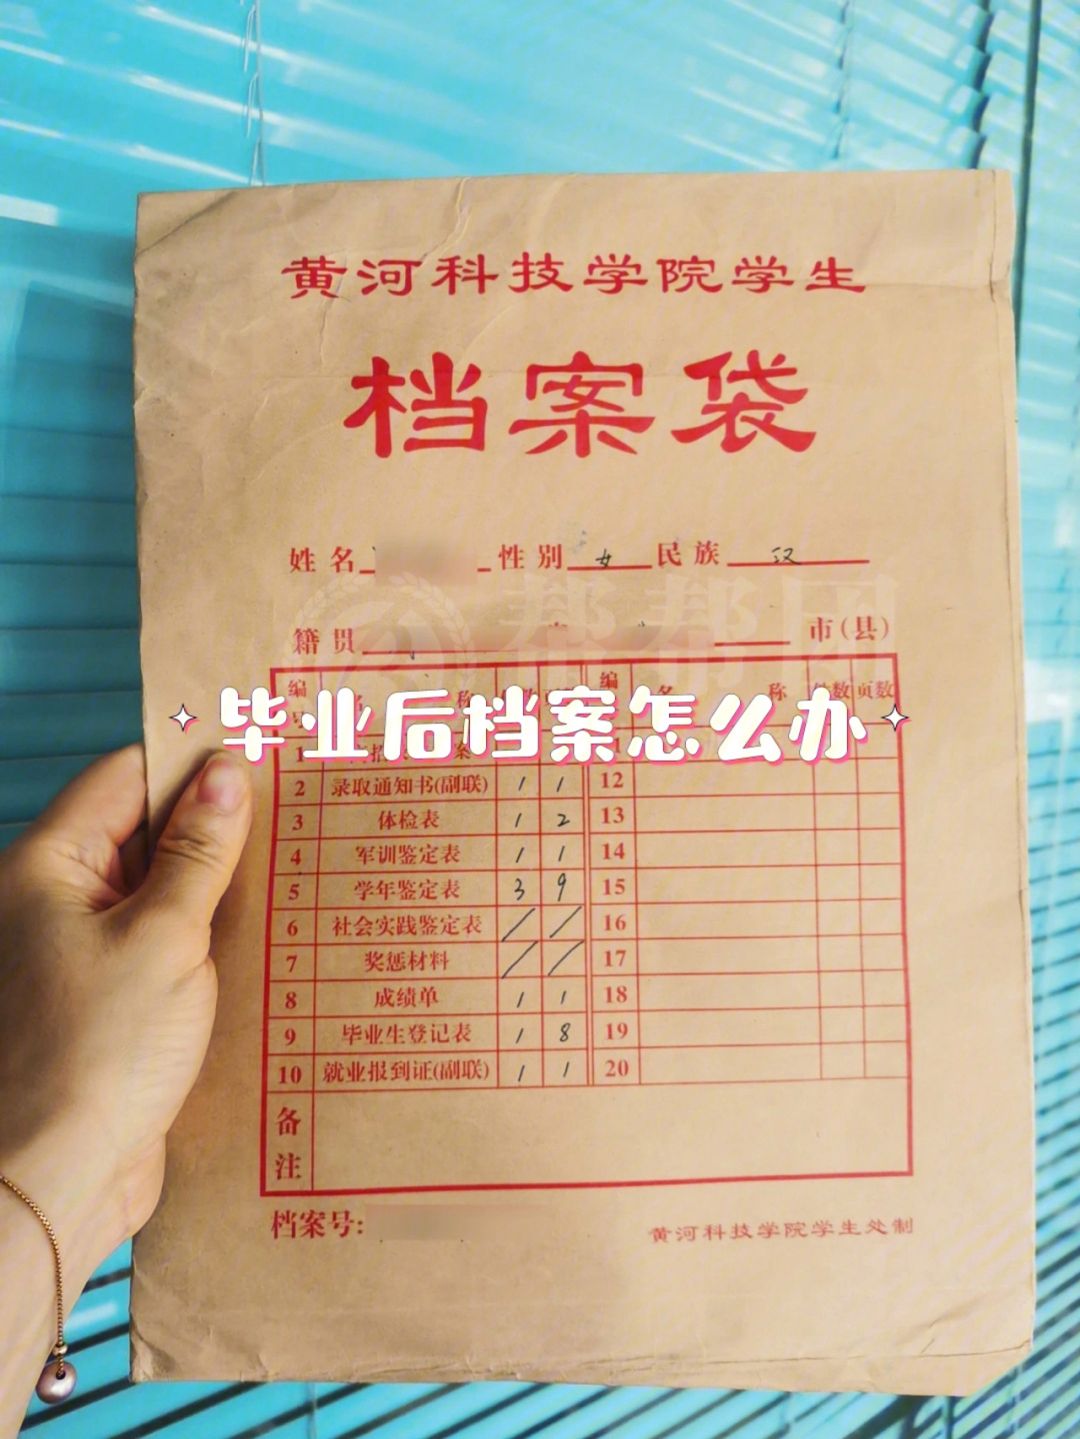 黄河科技学院学生
档案袋
姓名 性别 女 民族 汉
帮帮团
籍贯 市(县)
编 称 数 编 名 称 件数 页数
毕业后档案怎么办
1 案
2 录取通知书(副联) 1 1 12
3 体检表 1 2 13
4 军训鉴定表 1 1 14
5 学年鉴定表 3 9 15
6 社会实践鉴定表 / / 16
7 奖惩材料 / / 17
8 成绩单 1 1 18
9 毕业生登记表 1 8 19
10 就业报到证(副联) 1 1 20
备注
档案号:
黄河科技学院学生处制